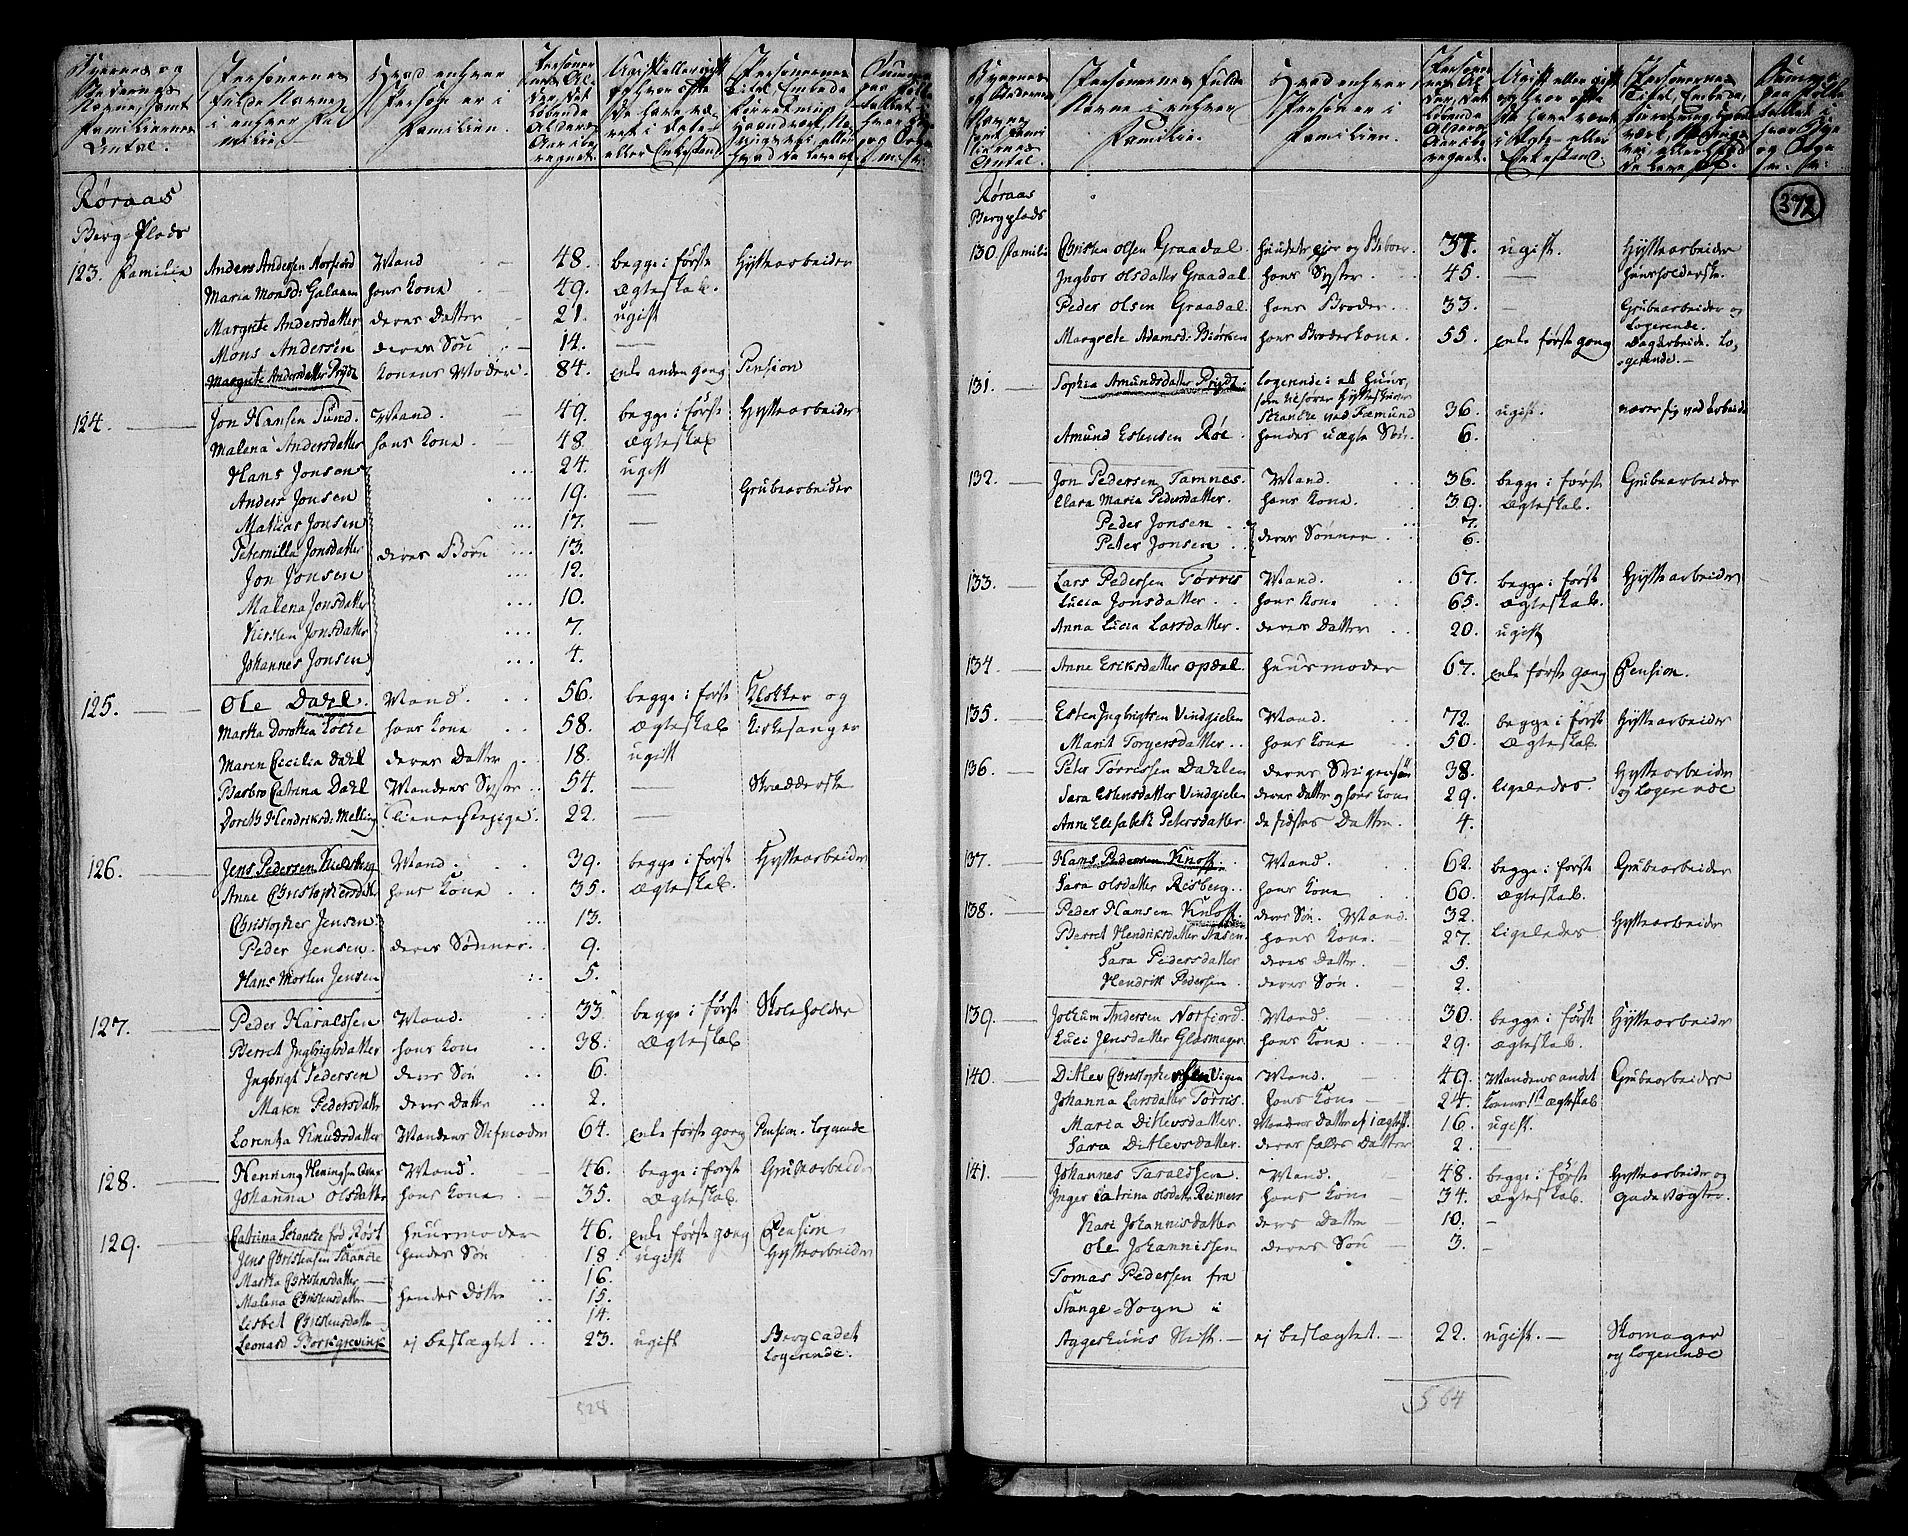 Byernes og Stedernes Navne, samt Familiernes Antal.
Personernes fulde Navne i enhver Familie
Hvad enhver Person er i Familien.
Personernes Alder, det løbende Alders Aar iberegnet.
Ugift eller gift og hvor ofte de have været i Ægte- eller Enkestand
Personernes Titel, Embede, Forretning, Haandværk, Næringsvei eller hvad de leve af
Røraas
Berg-Plads
123. Familie Anders Andersen Norfiord Mand 48. begge i første Hytte arbeider
Maria Monsd: Galaaen hans Kone 49. Ægteskab.
Margrete Andersdatter deres Datter 21. ugift
Mons Andersen deres Søn 14. —
Margrete Andersdatter Prÿdz Konens Moder. 84. Enke anden gang Pension
124. Jon Hansen Sund. Mand. 49. begge i første Hyttearbeider
Malena Andersdatter hans Kone. 48. Ægteskab
Hans Jonsen 24. ugift
Anders Jonsen 19. — Grubearbeider
Matias Jonsen 17. —
Peternilla Jonsdatter deres Børn 13.
Jon Jonsen 12.
Malena Jonsdatter 10.
Kirsten Jonsdatter 7.
Johannes Jonsen 4.
125. Ole Dahl. Mand. 56. begge i først Klokker og
Martha Dorothea hans Kone 58. Ægteskab Kirkesanger
Maren Cicilia Dahl deres Datter 18. ugift
Barbro Catrina Dahl Mandens Syster 54. — Skrædderske
Doreth Hendriksd: Melling Tienestepige. 22. —
126. Jens Pedersen Mand. 39. begge i først Hyttearbeider
Anne Christophersdatt hans Kone 35. Ægteskab.
Christopher Jensen 13.
Peder Jensen. deres Sønner 9.
Hans Morten Jensen 5.
127. Peder Haralssen Mand. 33 begge i først Skoleholder
Berret Ingbrigtsdatter hans Kone 38. Ægteskab
Ingbrigt Pedersen deres Søn 6.
Maren Pedersdatter deres Datter 2.
Lorentza Knudsdatter Mandens Stifmoder 64. enke første gang Pension. Logerende
128. Henning Heningsen Mand. 46. begge i først Grubearbeider
Johanna Olsdatter hans Kone 35. Ægteskab.
129. Catrina Strancke fød Røst Huusmoder 46. Enke første gang Pension
Jens Christensen Strancke hendes Søn 18. ugift Hyttearbeider
Martha Christensdatter 16.
Malena Christensdatter hendes Døttre 15.
Lisbet Christensdatter 14.
Leonard Borkgrevink ej beslægtet 23. ugift Bergcadet
Logerende.
528
Personernes fulde Navne i enhver Familie.
Hvad enhver Person er i Familien.
372
Røraas
Bergplads
130 Familie Christen Olsen Graadal. huuseier og Beboer 37. ugift. Hyttearbeider
Ingbor Olsdatter Graadal hans Syster. 45. — huusholderske.
Peder Olsen Graadal. hans Broder. 33. — Grubearbeider og
Logerende.
Margrete Adamsd: Biørken hans Broderkone. 55. enke første gang Dagarbeide. Lo-
gerende.—
131. Sophia Amundsdatter Prydz. logerende i et Huus,
Strancke ved Fæmund 36. ugift. nærer sig ved Arbeide
Amund Estensen Røe. hendes uægte Søn. 6.
132. Jon Pedersen Tamnes. Mand. 36. begge i først Grubearbeider
Clara Maria Pedersdatter. hans Kone. 39. Ægteskab.
Peder Jonsen 7.
Peter Jonsen. deres Sønner 6.
133. Lars Pedersen Tørris Mand. 67. begge i først Hyttearbeider
Lucia Jonsdatter. hans Kone 65. Ægteskab.
Anna Lucia Larsdatter. deres Datter 20. ugift
134 Anne Eriksdatter Opdal. Huusmoder 67. enke første gang Pension.
135. Esten Ingbrigtsen Vindgielen Mand. 72. begge i først Hyttearbeider
Marit Torgersdatter. hans Kone 50. Ægteskab.
136. Peter Tørrissen Dahlen deres Svigersøn 38. Hyttearbeider
Sara Estensdatter Vindgielen deres Datter og hans Kone 29. ligeledes. og Logerende
Anne Elisabeth Petersdatter. de sidstes Datter. 4.
137. Hans Pedersen Knoff. Mand. 62. begge i først Grubearbeider
Sara Olsdatter Risberg. hans Kone 60. Ægteskab.
138. Peder Hansen Knoff. deres Søn. Mand. 32. ligeledes Hyttearbeider
Berret Hendriksdatter Aasen. hans Kone. 27.
Sara Pedersdatter deres Datter. 5.
Hendrik Pedersen. deres Søn. 2.
139. Jochum Andersen Norfiord. Mand. 30. begge i først Hyttearbeider
Luci Jensdatter Glasmager. hans Kone. 29. Ægteskab.
140. Ditlev Christophersen Vigen Mand. 49. Mandens andet Grubearbeider
Johanna Larsdatter Tørris. hans Kone 24. Konens 1ste Ægteskab
Maria Ditlevsdatter. Mandens Datter af 1 ægtesk. 16. ugift.
Sara Ditlevsdatter. deres fælles Datter 2. —
141. Johannes Taraldsen. Mand. 48. begge i først Hyttearbeider og
Inger Catrina Olsdattr Reimers hans Kone 34. Ægteskab. gadevogter.
Kari Johannisdatter deres Datter 10. —
Ole Johannissen deres Søn 3. —
Tomas Pedersen fra
Stange-Sogn i
Aggershuus Stift. — ej beslægtet. — 22. ugift. — Skomager
og Logerende
564